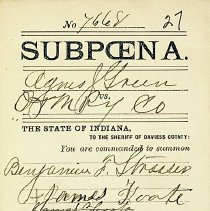 No 7668 27
SUBPŒNA.
Agnes J Green
vs.
O & M Ry Co
THE STATE OF INDIANA,
TO THE SHERIFF OF DAVIESS COUNTY:
You are commanded to summon
Benjamin F. Strosser
James Foote